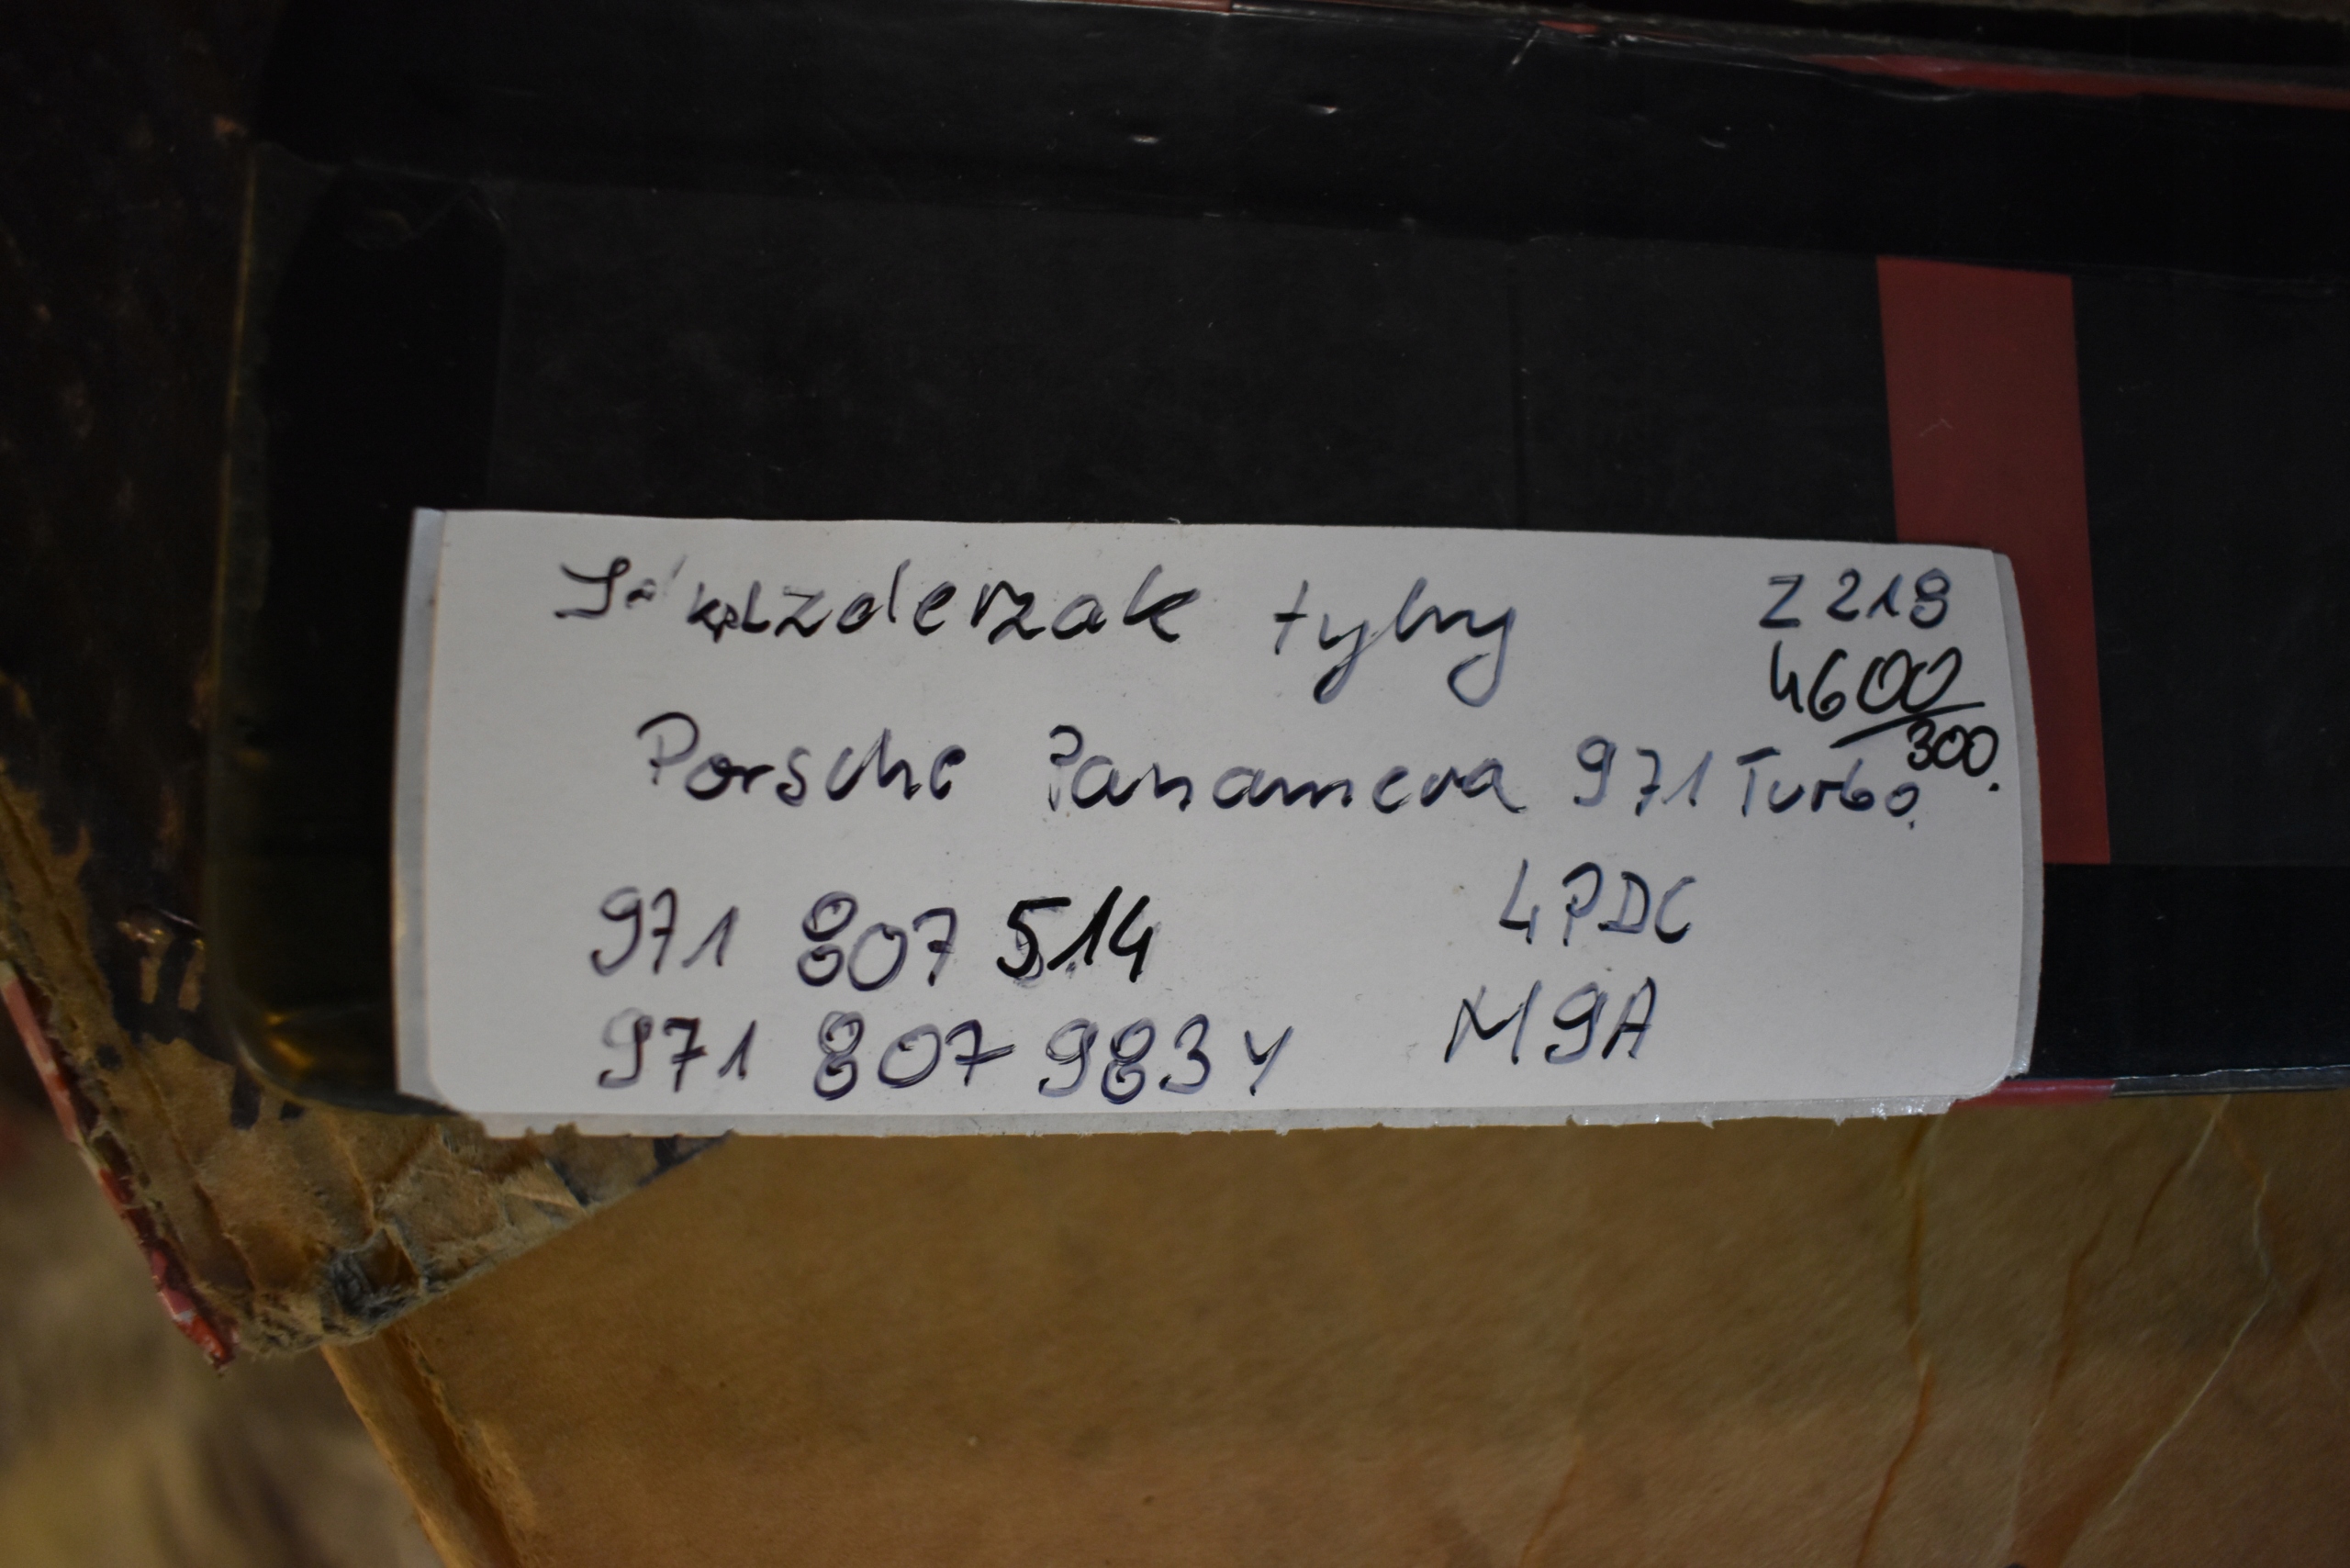 kpl zderzak tylny Z 219
4600/300.
Porsche Panamera 971 Turbo
971 807 514 4PDC
971 807 983 Y M9A